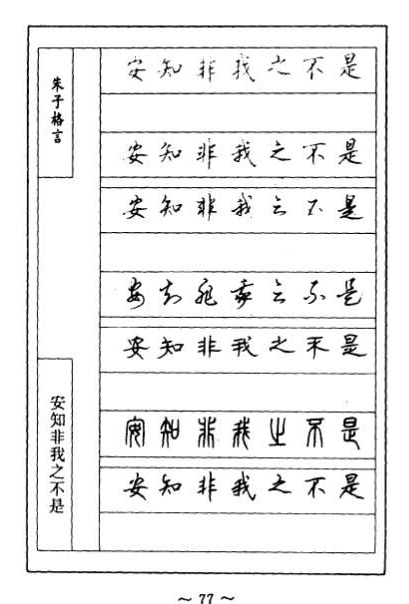 朱子格言
安知非我之不是
安知非我之不是
安知非我之不是
安知非我之不是
安知非我之不是
安知非我之不是
安知非我之不是
安知非我之不是
~ 77 ~